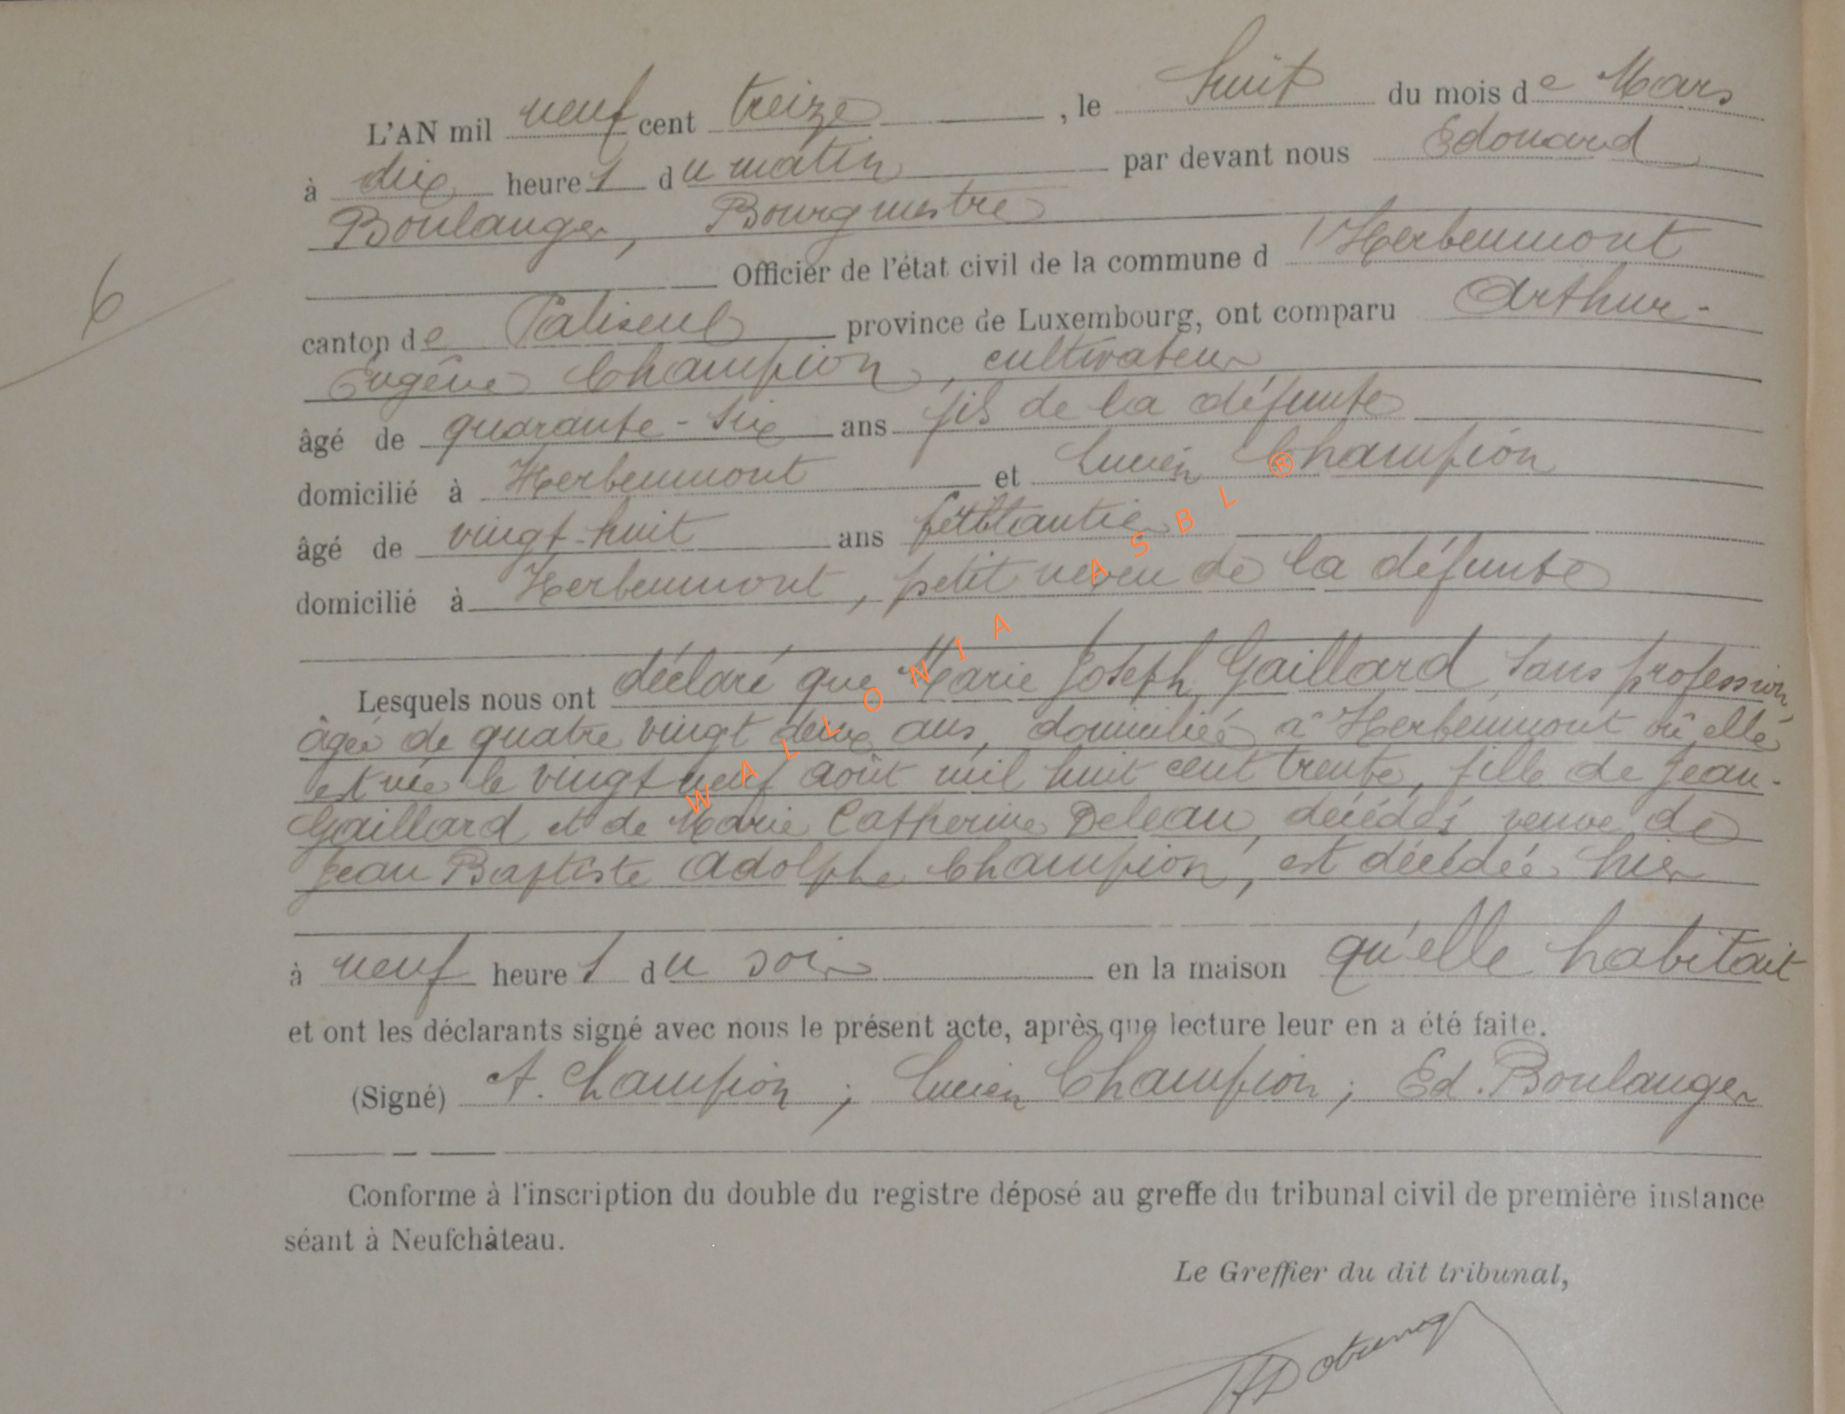 L'AN mil neuf cent treize, le huit du mois de Mars
à dix heures du matin par devant nous Edouard
Boulanger, Bourgmestre
Officier de l'état civil de la commune d'Herbeumont
6
canton de Paliseul province de Luxembourg, ont comparu Arthur-
Eugène Champion, cultivateur
âgé de quarante-six ans fils de la défunte
domicilié à Herbeumont et Lucien Champion
âgé de vingt-huit ans
domicilié à Herbeumont, petit neveu de la défunte
Lesquels nous ont déclaré que Marie Joseph Gaillard, sans profession,
âgée de quatre vingt deux ans, domiciliée à Herbeumont où elle
est née le vingt neuf août mil huit cent trente, fille de Jean-
Gaillard et de Marie Catherine Deleau, décédés, veuve de
Jean Baptiste Adolphe Champion, est décédée hier
à neuf heures du soir en la maison qu'elle habitait
et ont les déclarants signé avec nous le présent acte, après que lecture leur en a été faite.
(Signé) A. Champion; Lucien Champion; Ed. Boulanger
Conforme à l'inscription du double du registre déposé au greffe du tribunal civil de première instance
séant à Neufchâteau.
Le Greffier du dit tribunal,
WALLONIA ASBL ®